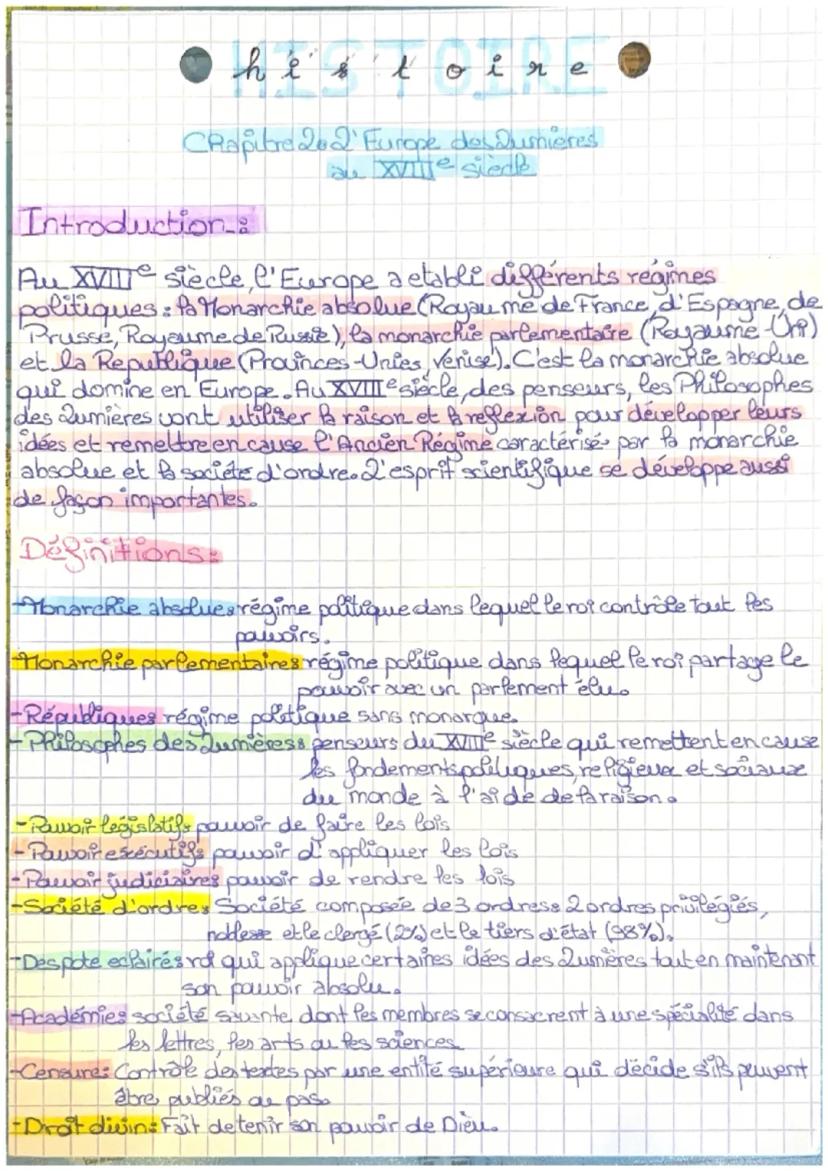 HISTOIRE
histoire
Chapitre 2: L'Europe des Lumières
au XVIIIe siècle
Introduction:
Au XVIIIe siècle, l'Europe a etabli différents régimes
politiques: la Monarchie absolue (Royaume de France, d'Espagne, de
Prusse, Royaume de Russie), la monarchie parlementaire (Royaume-Uni)
et la Republique (Provinces-Unies, Venise). C'est la monarchie absolue
qui domine en Europe. Au XVIIIe siècle, des penseurs, les Philosophes
des Lumières vont utiliser la raison et la reflexion pour développer leurs
idées et remettre en cause l'Ancien Régime caractérisé par la monarchie
absolue et la société d'ordre. L'esprit scientifique se développe aussi
de façon importantes.
Définitions:
-Monarchie absolue: régime politique dans lequel le roi contrôle tout les
pouvoirs.
-Monarchie parlementaire: régime politique dans lequel le roi partage le
pouvoir avec un parlement élu.
-République: régime politique sans monarque.
-Philosophes des Lumières: penseurs du XVIIIe siècle qui remettent en cause
les fondements politiques, religieux et sociaux
du monde à l'aide de la raison.
-Pouvoir législatif: pouvoir de faire les lois
-Pouvoir exécutif: pouvoir d'appliquer les lois
-Pouvoir judiciaire: pouvoir de rendre les lois
-Société d'ordre: Société composée de 3 ordres: 2 ordres privilégiés,
noblesse et le clergé (2%) et le tiers d'état (98%).
-Despote eclairé: roi qui applique certaines idées des Lumières tout en maintenant
son pouvoir absolu.
-Académie: société savante dont les membres se consacrent à une spécialité dans
les lettres, les arts ou les sciences
-Censure: Contrôle des textes par une entité supérieure qui décide s'ils peuvent
être publiés ou pas.
-Droit divin: Fait de tenir son pouvoir de Dieu.